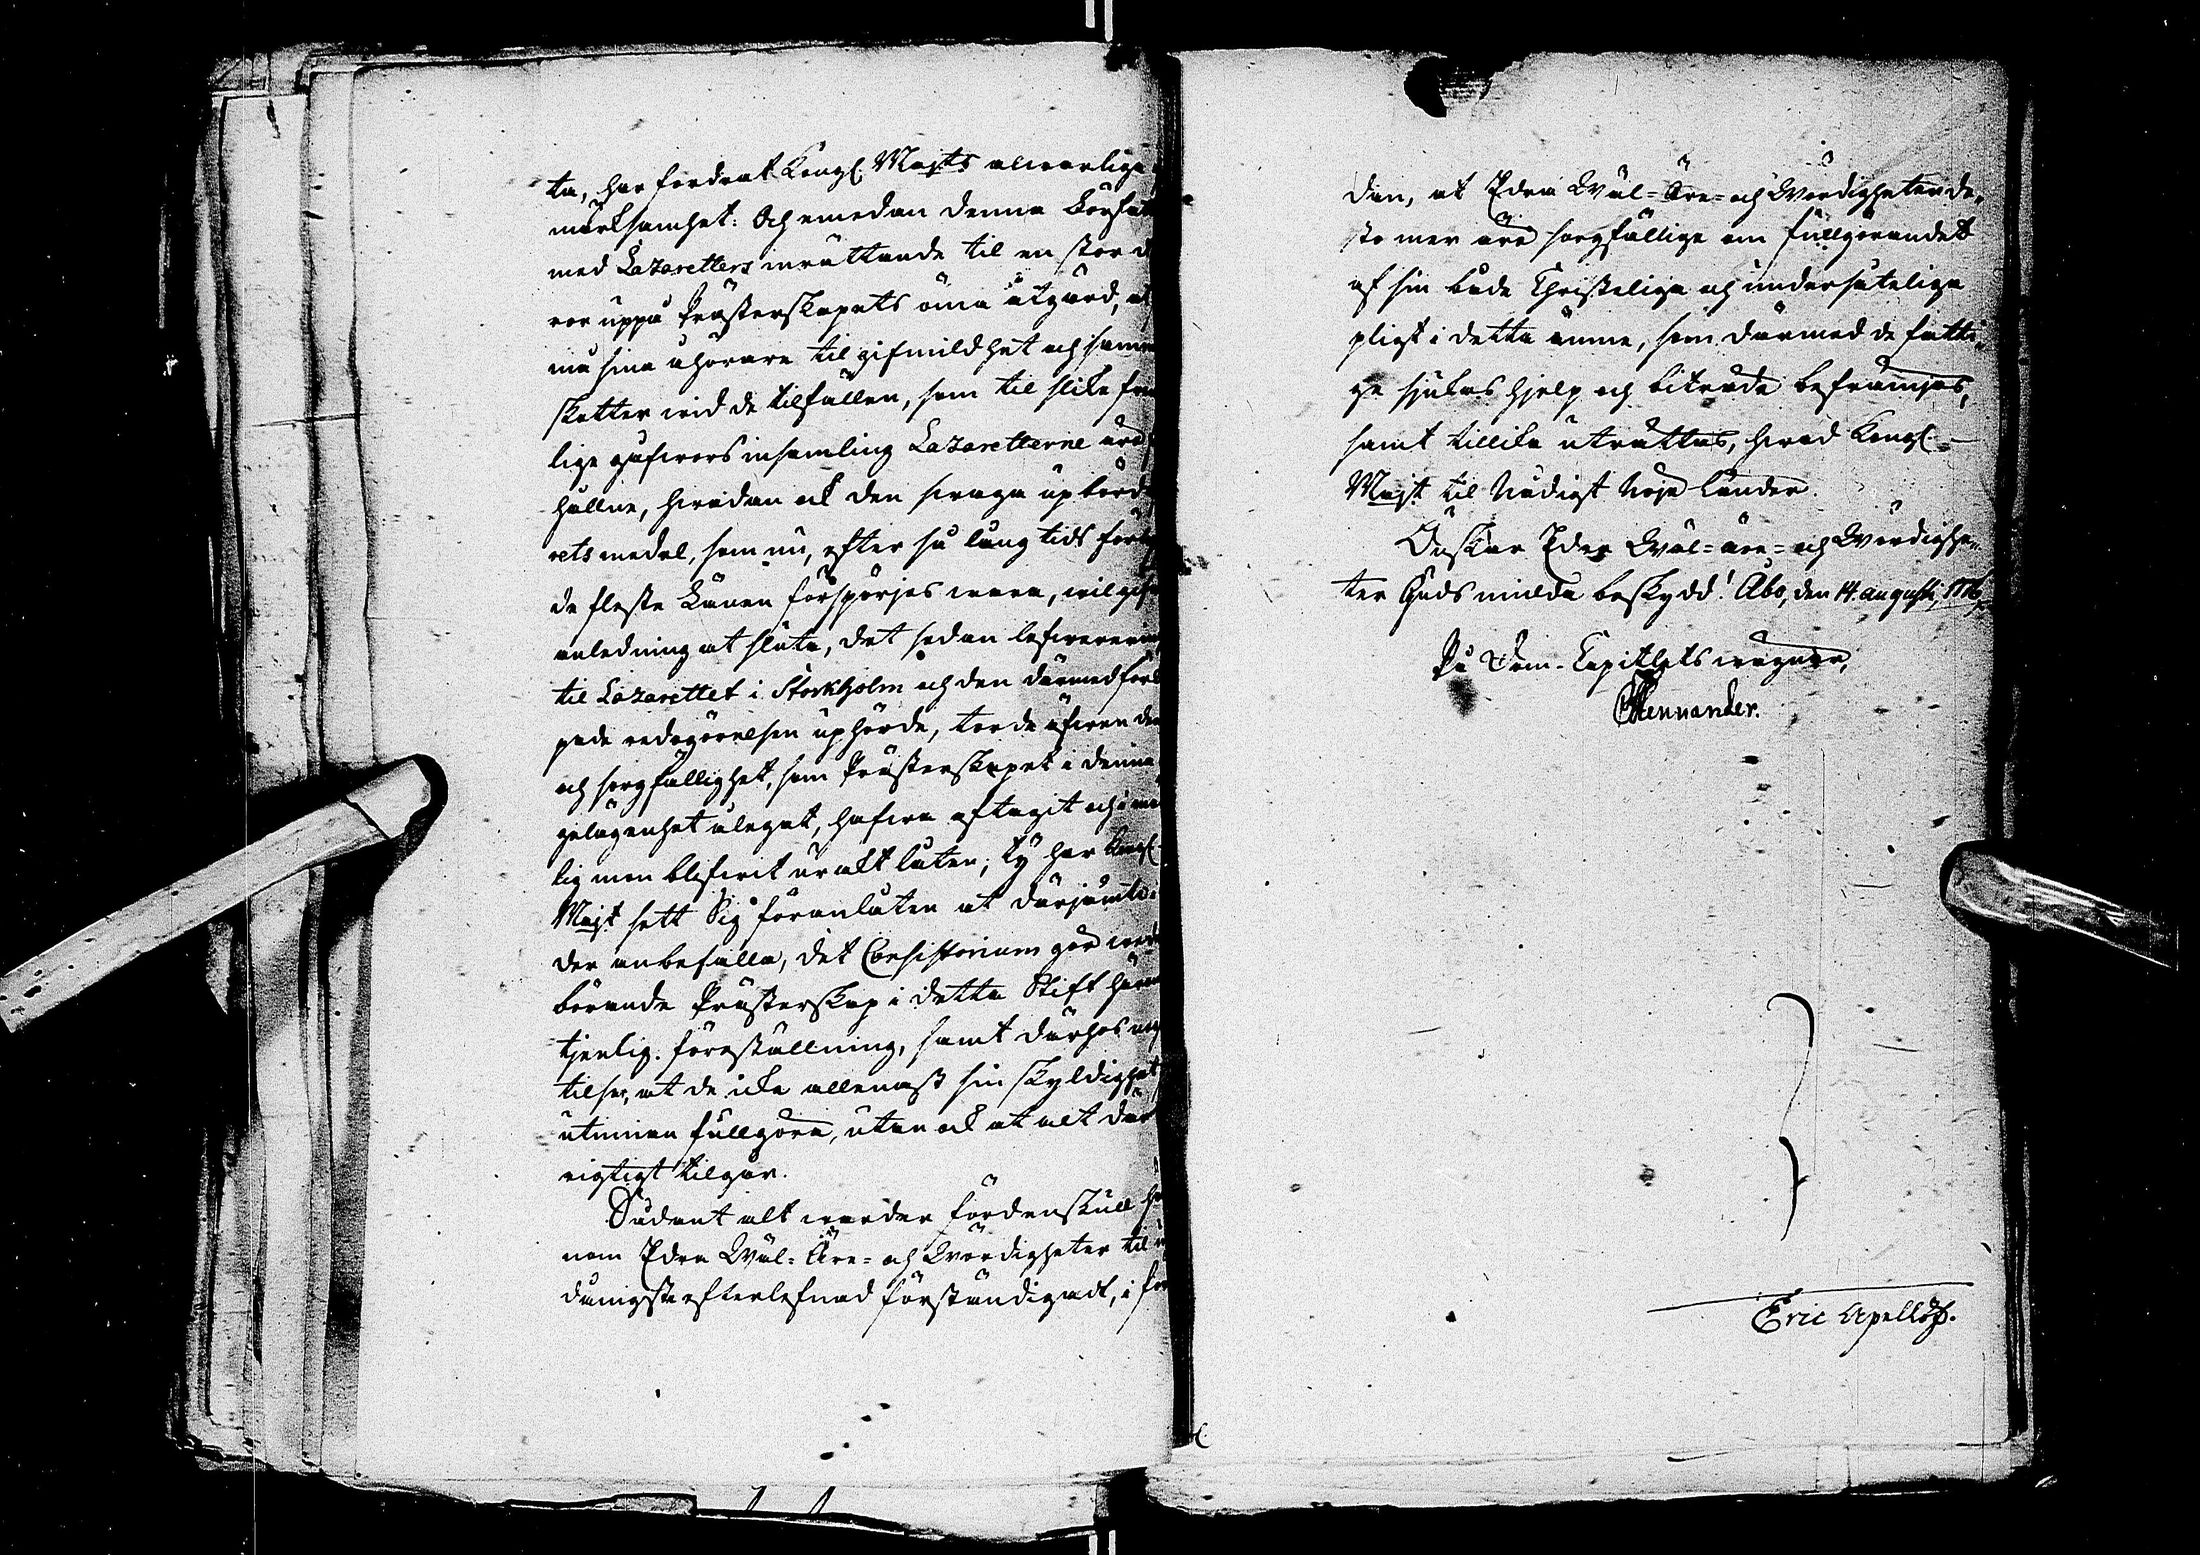 ta, har fordrat Kongl. Majts alwarliga
märksamhet: Och emedan denna Förfat
med Lazaretters inrättande til en stor d
ror uppå Prästerskapets öma åtgärd, at
ma sina åhörare til gifmildhet och samm
skotter wid de tilfällen, som til slika fri
lige gåfwors insamling Lazaretterne äro
hållne, hwadan ock den swaga upbörd
ets medel, som nu, efter så lång tids förl
de fleste Länen förspörjes wara, wil gifwa
anledning at sluta, det sedan lefwereringen
til Lazarettet i Stockholm och den därmed förk
pade redogörelsen uphörde, torde äfwen den
och sorgfällighet, som Prästerskapet i denna
gelägenhet ålegat, hafwa aftagit och
lig mon blefwit ur akt låten; ty har Kongl.
Majt sett Sig föranlåten at därjämte
der anbefalla, det Consistorium gör wed
börande Prästerskap i detta Stift häru
tjenlig föreställning, samt därhos
tilser, at de icke allenast sin skyldighet
utinnan fullgöra, utan ock at alt där
rigtigt tilgår.
Sådant alt warder fördenskull h
nom Edra Wäl-Äre- och Wördigheter til
dånigste efterlefnad förständigadt, i för
dan, at Edra Wäl-Äre- och Wördigheter de„
sto mer äro sorgfällige om fullgörandet
af sin både Christeliga och undersåteliga
pligt i detta ämne, som därmed de fatti„
ge sjukas hjelp och biträde befrämjas,
samt tillika uträttas, hwad Kongl.
Majt. til Nådigt Nöje länder.
Önskar Eder Wäl-äre- och Wördighe„
ter Guds milda beskydd! Åbo, den 14. augusti, 1776.
På Dom-Capitlets wägnar,
CFMennander.
Eric Apellöf.